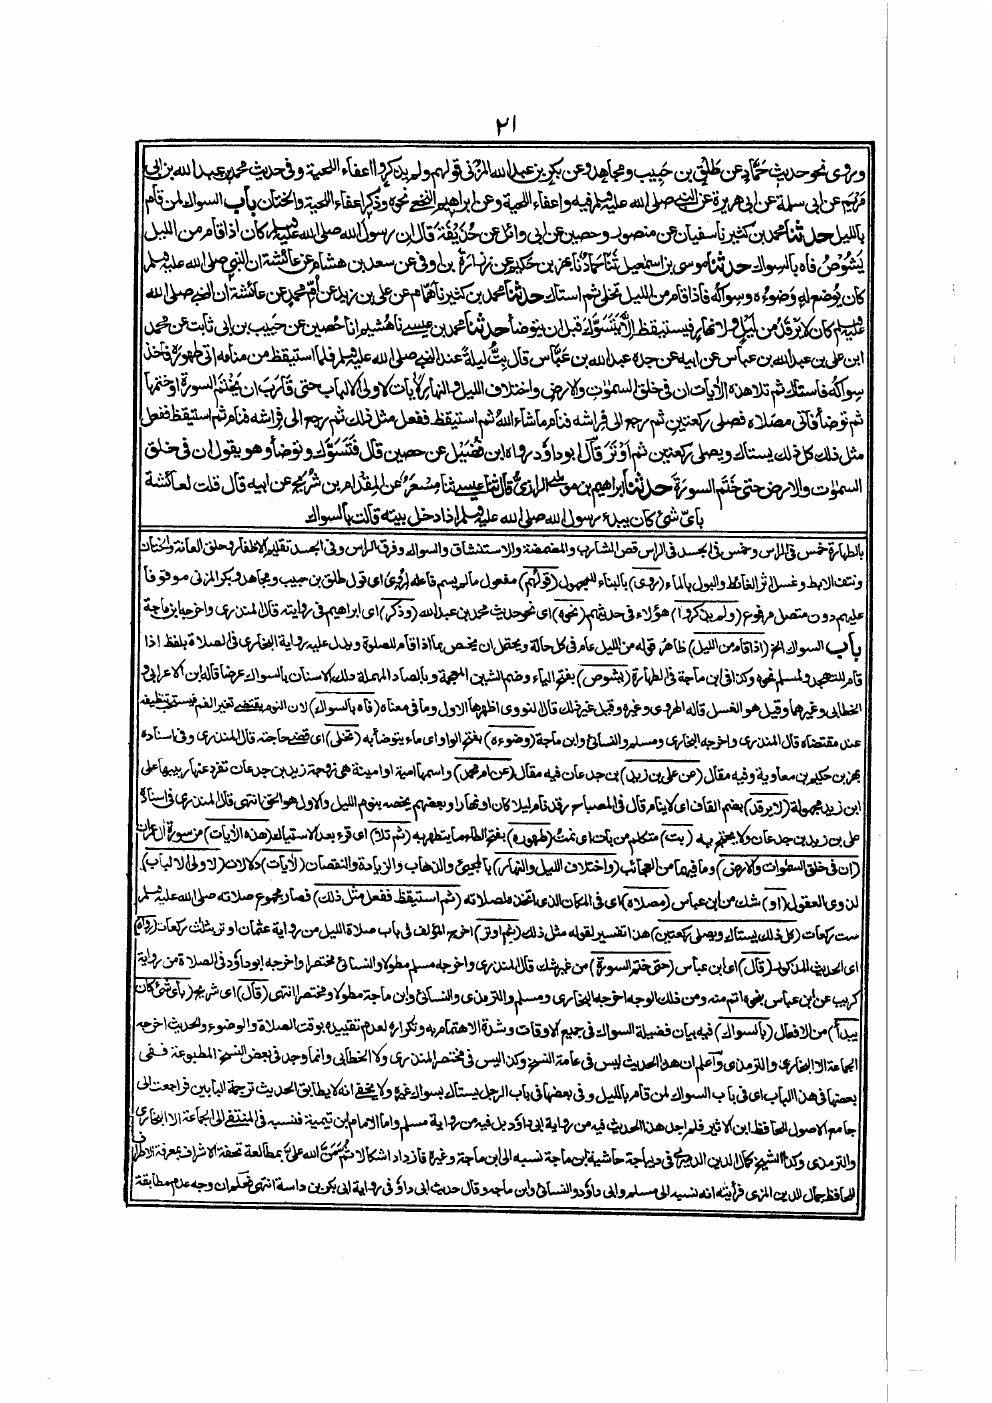 ٢١
وروى نحو حديث حماد عن طلق بن حبيب ومجاهد وعن بكر بن عبد الله المزنى قولهم ولم يذكروا اعفاء اللحية وفى حديث محمد بن عبد الله بن ابى
مريم عن ابى سلمة عن ابى هريرة عن النبى صلى الله عليه وسلم فيه واعفاء اللحية وعن ابراهيم النخعى نحوه وذكر اعفاء اللحية والختان باب السواك لمن قام
بالليل حدثنا محمد بن كثير نا سفيان عن منصور وحصين عن ابى وائل عن حذيفة قال ان رسول الله صلى الله عليه وسلم كان اذا قام من الليل
يشوص فاه بالسواك حدثنا موسى بن اسمعيل ثنا حماد نا بهز بن حكيم عن زرارة بن اوفى عن سعد بن هشام عن عائشة ان النبى صلى الله عليه وسلم
كان يوضع له وضوءه وسواكه فاذا قام من الليل تخلى ثم استاك حدثنا محمد بن كثير نا همام عن على بن زيد عن ام محمد عن عائشة ان النبى صلى الله
عليه وسلم كان لا يرقد من ليل ولا نهار فيستيقظ الا يتسوك قبل ان يتوضأ حدثنا محمد بن عيسى نا هشيم انا حصين عن حبيب بن ابى ثابت عن محمد
ابن على بن عبد الله بن عباس عن ابيه عن جده عبد الله بن عباس قال بت ليلة عند النبى صلى الله عليه وسلم فلما استيقظ من منامه اتى طهوره فاخذ
سواكه فاستاك ثم تلا هذه الآيات ان فى خلق السموات والارض واختلاف الليل والنهار لآيات لاولى الالباب حتى قارب ان يختم السورة او ختمها
ثم توضأ فاتى مصلاه فصلى ركعتين ثم رجع الى فراشه فنام ما شاء الله ثم استيقظ ففعل مثل ذلك ثم رجع الى فراشه فنام ثم استيقظ ففعل
مثل ذلك كل ذلك يستاك ويصلى ركعتين ثم اوتر قال ابو داؤد رواه ابن فضيل عن حصين قال فتسوك وتوضأ وهو يقول ان فى خلق
السموات والارض حتى ختم السورة حدثنا ابراهيم بن موسى الرازى قال ثنا عيسى ثنا مسعر عن المقدام بن شريح عن ابيه قال قلت لعائشة
باى شئ كان يبدء رسول الله صلى الله عليه وسلم اذا دخل بيته قالت بالسواك
بالطهارة خمس فى الراس وخمس فى الجسد فى الراس قص الشارب والمضمضة والاستنشاق والسواك وفرق الراس وفى الجسد تقليم الاظفار وحلق العانة والختان
ونتف الابط وغسل اثر الغائط والبول بالماء (روى) بالبناء للمجهول (قولهم) مفعول ما لم يسم فاعله لروى اى قول طلق بن حبيب ومجاهد وبكر المزنى موقوفا
عليهم دون متصل مرفوع (ولم يذكروا) هؤلاء فى حديثهم (نحوه) اى نحو حديث محمد بن عبد الله (وذكر) اى ابراهيم فى روايته قال المنذرى واخرجه ابن ماجة
باب السواك الخ (اذا قام من الليل) ظاهر قوله من الليل عام فى كل حالة ويحتمل ان يخص بما اذا قام للصلوة ويدل عليه رواية البخارى فى الصلاة بلفظ اذا
قام للتهجد ولمسلم نحوه وكذا فى ابن ماجة فى الطهارة (يشوص) بفتح الياء وضم الشين المعجمة وبالصاد المهملة دلك الاسنان بالسواك عرضا قاله ابن الاعرابى و
الخطابى وغيرهما وقيل هو الغسل قاله الهروى وغيره وقيل غير ذلك قال النووى اظهرها الاول وما فى معناه (فاه بالسواك) لان النوم يقتضى تغير الفم فيستحب تنظيفه
عند مقتضاه قال المنذرى واخرجه البخارى ومسلم والنسائى وابن ماجة (وضوءه) بفتح الواو اى ماء يتوضأ به (تخلى) اى قضى حاجته قال المنذرى وفى اسناده
بهز بن حكيم بن معاوية وفيه مقال (عن على بن زيد) بن جدعان فيه مقال (عن ام محمد) واسمها امية او امينة هى زوجة زيد بن جدعان تفرد عنها ربيبها على
ابن زيد مجهولة (لا يرقد) بضم القاف اى لا ينام قال فى المصباح رقد نام ليلا كان او نهارا وبعضهم يخصه بنوم الليل والاول هو الحق انتهى قال المنذرى فى اسناده
على بن زيد بن جدعان ولا يحتج به (بت) متكلم من بات اى نمت (طهوره) بفتح الطاء ما يتطهر به (ثم تلا) اى قرء بعد الاستياك (هذه الآيات) من سورة آل عمران
(ان فى خلق السموات والارض) وما فيهما من العجائب (واختلاف الليل والنهار) بالمجئ والذهاب والزيادة والنقصان (لآيات) دلالات (لاولى الالباب)
لذوى العقول (او) شك من ابن عباس (مصلاه) اى فى المكان الذى اتخذه لصلاته (ثم استيقظ ففعل مثل ذلك) فصار مجموع صلاته صلى الله عليه وسلم
ست ركعات (كل ذلك يستاك ويصلى ركعتين) هذا تفسير لقوله مثل ذلك (ثم اوتر) اخرج المؤلف فى باب صلاة الليل من رواية عثمان اوتر بثلث ركعات (رواه)
اى الحديث المذكور (قال) اى ابن عباس (حتى ختم السورة) من غير شك قال المنذرى واخرجه مسلم مطولا والنسائى مختصرا واخرجه ابو داؤد فى الصلاة من رواية
كريب عن ابن عباس بنحوه اتم منه ومن ذلك الوجه اخرجه البخارى ومسلم والترمذى والنسائى وابن ماجة مطولا ومختصرا انتهى (قال) اى شريح (باى شئ كان
يبدأ) من الافعال (بالسواك) فيه بيان فضيلة السواك فى جميع الاوقات وشدة الاهتمام به وتكراره لعدم تقييده بوقت الصلاة والوضوء والحديث اخرجه
الجماعة الا البخارى والترمذى واعلم ان هذا الحديث ليس فى عامة النسخ وكذا ليس فى مختصر المنذرى ولا الخطابى وانما وجد فى بعض النسخ المطبوعة ففى
بعضها فى هذا الباب اى فى باب السواك لمن قام بالليل وفى بعضها فى باب الرجل يستاك بسواك غيره ولا يخفى انه لا يطابق الحديث ترجمة البابين فراجعت الى
جامع الاصول للحافظ ابن الاثير فلم اجد هذا الحديث فيه من رواية ابى داؤد بل فيه من رواية مسلم واما الامام ابن تيمية فنسبه فى المنتقى الى الجماعة الا البخارى
والترمذى وكذا الشيخ كمال الدين الدميرى فى ديباجة حاشية ابن ماجة نسبه الى ابن ماجة وغيره فازداد اشكالا ثم من الله على بمطالعة تحفة الاشراف بمعرفة الاطراف
للحافظ جمال الدين المزى فرأيته انه نسبه الى مسلم وابى داؤد والنسائى وابن ماجه وقال حديث ابى داؤد فى رواية ابى بكر بن داسة انتهى فعلم ان وجه عدم مطابقة